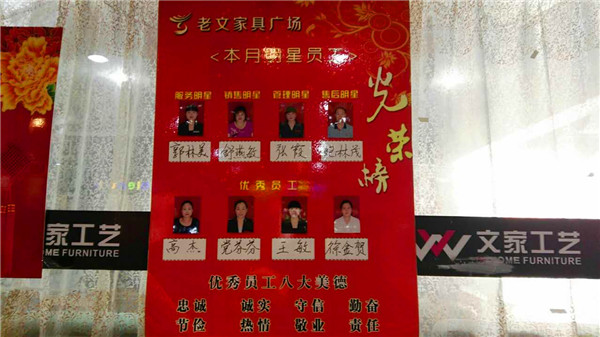 老文家具广场
<本月明星员工>
光荣榜
服务明星 销售明星 管理明星 售后明星
郭林美 张霞
优秀员工
高杰 党芬芬 王敏 徐金贺
优秀员工八大美德
忠诚 诚实 守信 勤奋
节俭 热情 敬业 责任
家工艺
OME FURNITURE
文家工艺
HOME FURNITURE